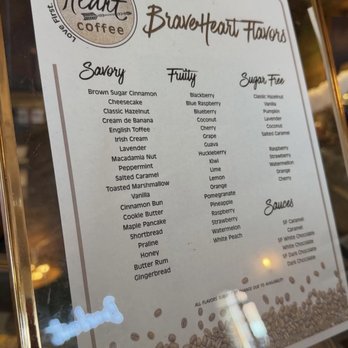 Heart
coffee
Love First
BraveHeart Flavors
Savory
Brown Sugar Cinnamon
Cheesecake
Classic Hazelnut
Cream de Banana
English Toffee
Irish Cream
Lavender
Macadamia Nut
Peppermint
Salted Caramel
Toasted Marshmallow
Vanilla
Cinnamon Bun
Cookie Butter
Maple Pancake
Shortbread
Praline
Honey
Butter Rum
Gingerbread
Fruity
Blackberry
Blue Raspberry
Blueberry
Coconut
Cherry
Grape
Guava
Huckleberry
Kiwi
Lime
Lemon
Orange
Pomegranate
Pineapple
Raspberry
Strawberry
Watermelon
White Peach
Sugar Free
Classic Hazelnut
Vanilla
Pumpkin
Lavender
Coconut
Salted Caramel
Raspberry
Strawberry
Watermelon
Orange
Cherry
Sauces
SF Caramel
Caramel
SF White Chocolate
White Chocolate
SF Dark Chocolate
Dark Chocolate
ALL FLAVORS SUBJECT TO CHANGE DUE TO AVAILABILITY